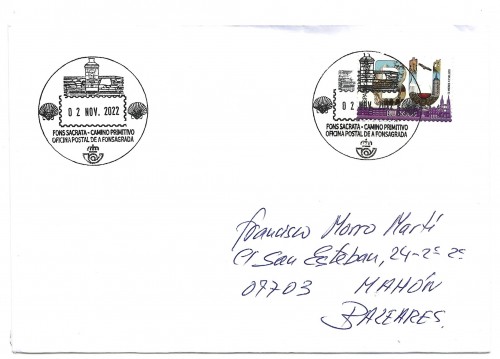 0 2 NOV. 2022
FONS SACRATA - CAMINO PRIMITIVO
OFICINA POSTAL DE A FONSAGRADA
BU
0 2 NOV.
FONS SACRATA - CAMINO PRIMITIVO
OFICINA POSTAL DE A FONSAGRADA
Francisco Morro Martí
C/ San Esteban, 24-2º 2ª
07703 MAHÓN
BALEARES.